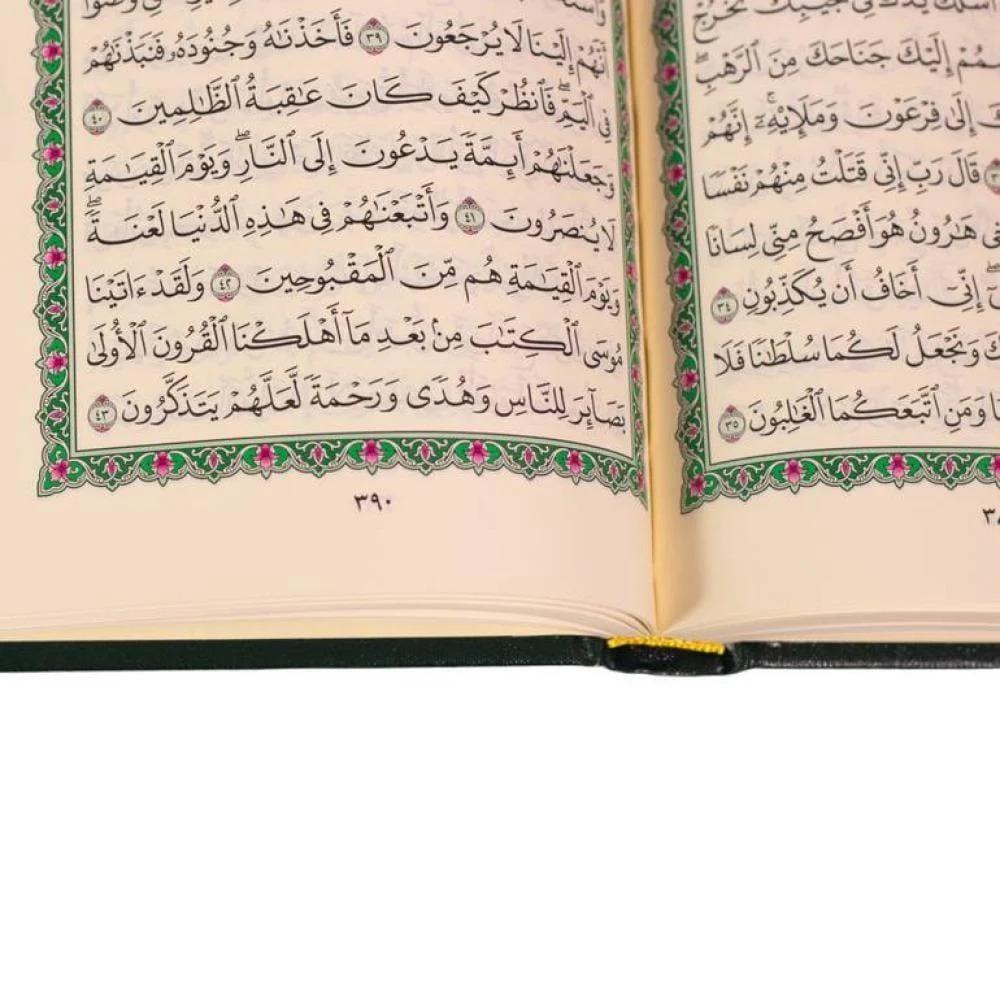 ٱسْلُكْ يَدَكَ فِى جَيْبِكَ تَخْرُجْ
إِلَيْكَ جَنَاحَكَ مِنَ ٱلرَّهْبِ ۖ
إِلَىٰ فِرْعَوْنَ وَمَلَإِيْهِۦٓ ۚ إِنَّهُمْ
قَالَ رَبِّ إِنِّى قَتَلْتُ مِنْهُمْ نَفْسًا
هَـٰرُونُ هُوَ أَفْصَحُ مِنِّى لِسَانًا
إِنِّىٓ أَخَافُ أَن يُكَذِّبُونِ ٣٤
وَنَجْعَلُ لَكُمَا سُلْطَـٰنًا فَلَا
وَمَنِ ٱتَّبَعَكُمَا ٱلْغَـٰلِبُونَ ٣٥
أَنَّهُمْ إِلَيْنَا لَا يُرْجَعُونَ ٣٩ فَأَخَذْنَـٰهُ وَجُنُودَهُۥ فَنَبَذْنَـٰهُمْ
فِى ٱلْيَمِّ ۖ فَٱنظُرْ كَيْفَ كَانَ عَـٰقِبَةُ ٱلظَّـٰلِمِينَ ٤٠
وَجَعَلْنَـٰهُمْ أَئِمَّةً يَدْعُونَ إِلَى ٱلنَّارِ ۖ وَيَوْمَ ٱلْقِيَـٰمَةِ
لَا يُنصَرُونَ ٤١ وَأَتْبَعْنَـٰهُمْ فِى هَـٰذِهِ ٱلدُّنْيَا لَعْنَةً ۖ
وَيَوْمَ ٱلْقِيَـٰمَةِ هُم مِّنَ ٱلْمَقْبُوحِينَ ٤٢ وَلَقَدْ ءَاتَيْنَا
مُوسَى ٱلْكِتَـٰبَ مِنۢ بَعْدِ مَآ أَهْلَكْنَا ٱلْقُرُونَ ٱلْأُولَىٰ
بَصَآئِرَ لِلنَّاسِ وَهُدًى وَرَحْمَةً لَّعَلَّهُمْ يَتَذَكَّرُونَ ٤٣
٣٩٠